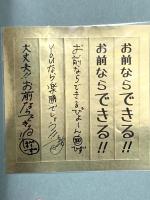 お前ならできる!!
お前ならできる!!
お前ならできるぴょーん
youなら楽勝でしょ
大丈夫お前ならできる